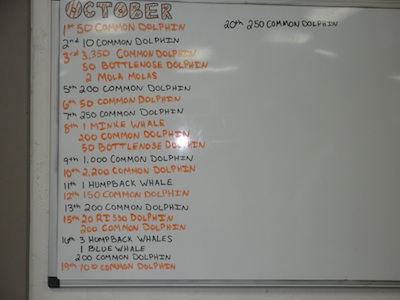 OCTOBER
1st 50 COMMON DOLPHIN
2nd 10 COMMON DOLPHIN
3rd 3,350 COMMON DOLPHIN
50 BOTTLENOSE DOLPHIN
2 MOLA MOLAS
5th 200 COMMON DOLPHIN
6th 50 COMMON DOLPHIN
7th 250 COMMON DOLPHIN
8th 1 MINKE WHALE
200 COMMON DOLPHIN
50 BOTTLENOSE DOLPHIN
9th 1,000 COMMON DOLPHIN
10th 2,200 COMMON DOLPHIN
11th 1 HUMPBACK WHALE
12th 150 COMMON DOLPHIN
13th 200 COMMON DOLPHIN
15th 20 RISSO DOLPHIN
200 COMMON DOLPHIN
16th 3 HUMPBACK WHALES
1 BLUE WHALE
200 COMMON DOLPHIN
19th 100 COMMON DOLPHIN
20th 250 COMMON DOLPHIN